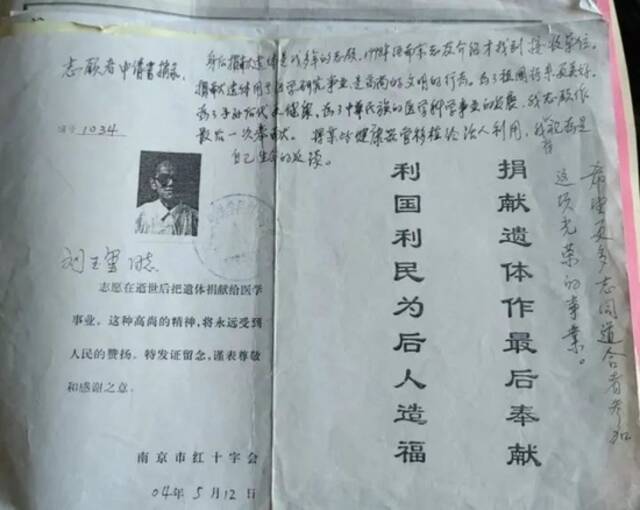 志愿者申请书摘录
身后捐献遗体是我多年的志愿，1998年经南京志友介绍才找到接收单位。
捐献遗体用于医学研究事业是高尚的文明的行为。为了祖国将来更美好，
为了子孙后代更健康，为了中华民族的医学科学事业的发展，我志愿作
最后一次奉献。
自己生命的延续。
编号 1034
刘玉玺 同志
志愿在逝世后把遗体捐献给医学
事业。这种高尚的精神，将永远受到
人民的赞扬。特发证留念，谨表尊敬
和感谢之意。
南京市红十字会
04年5月12日
捐献遗体作最后奉献
利国利民为后人造福
希望更多志同道合者参加
这项光荣的事业。